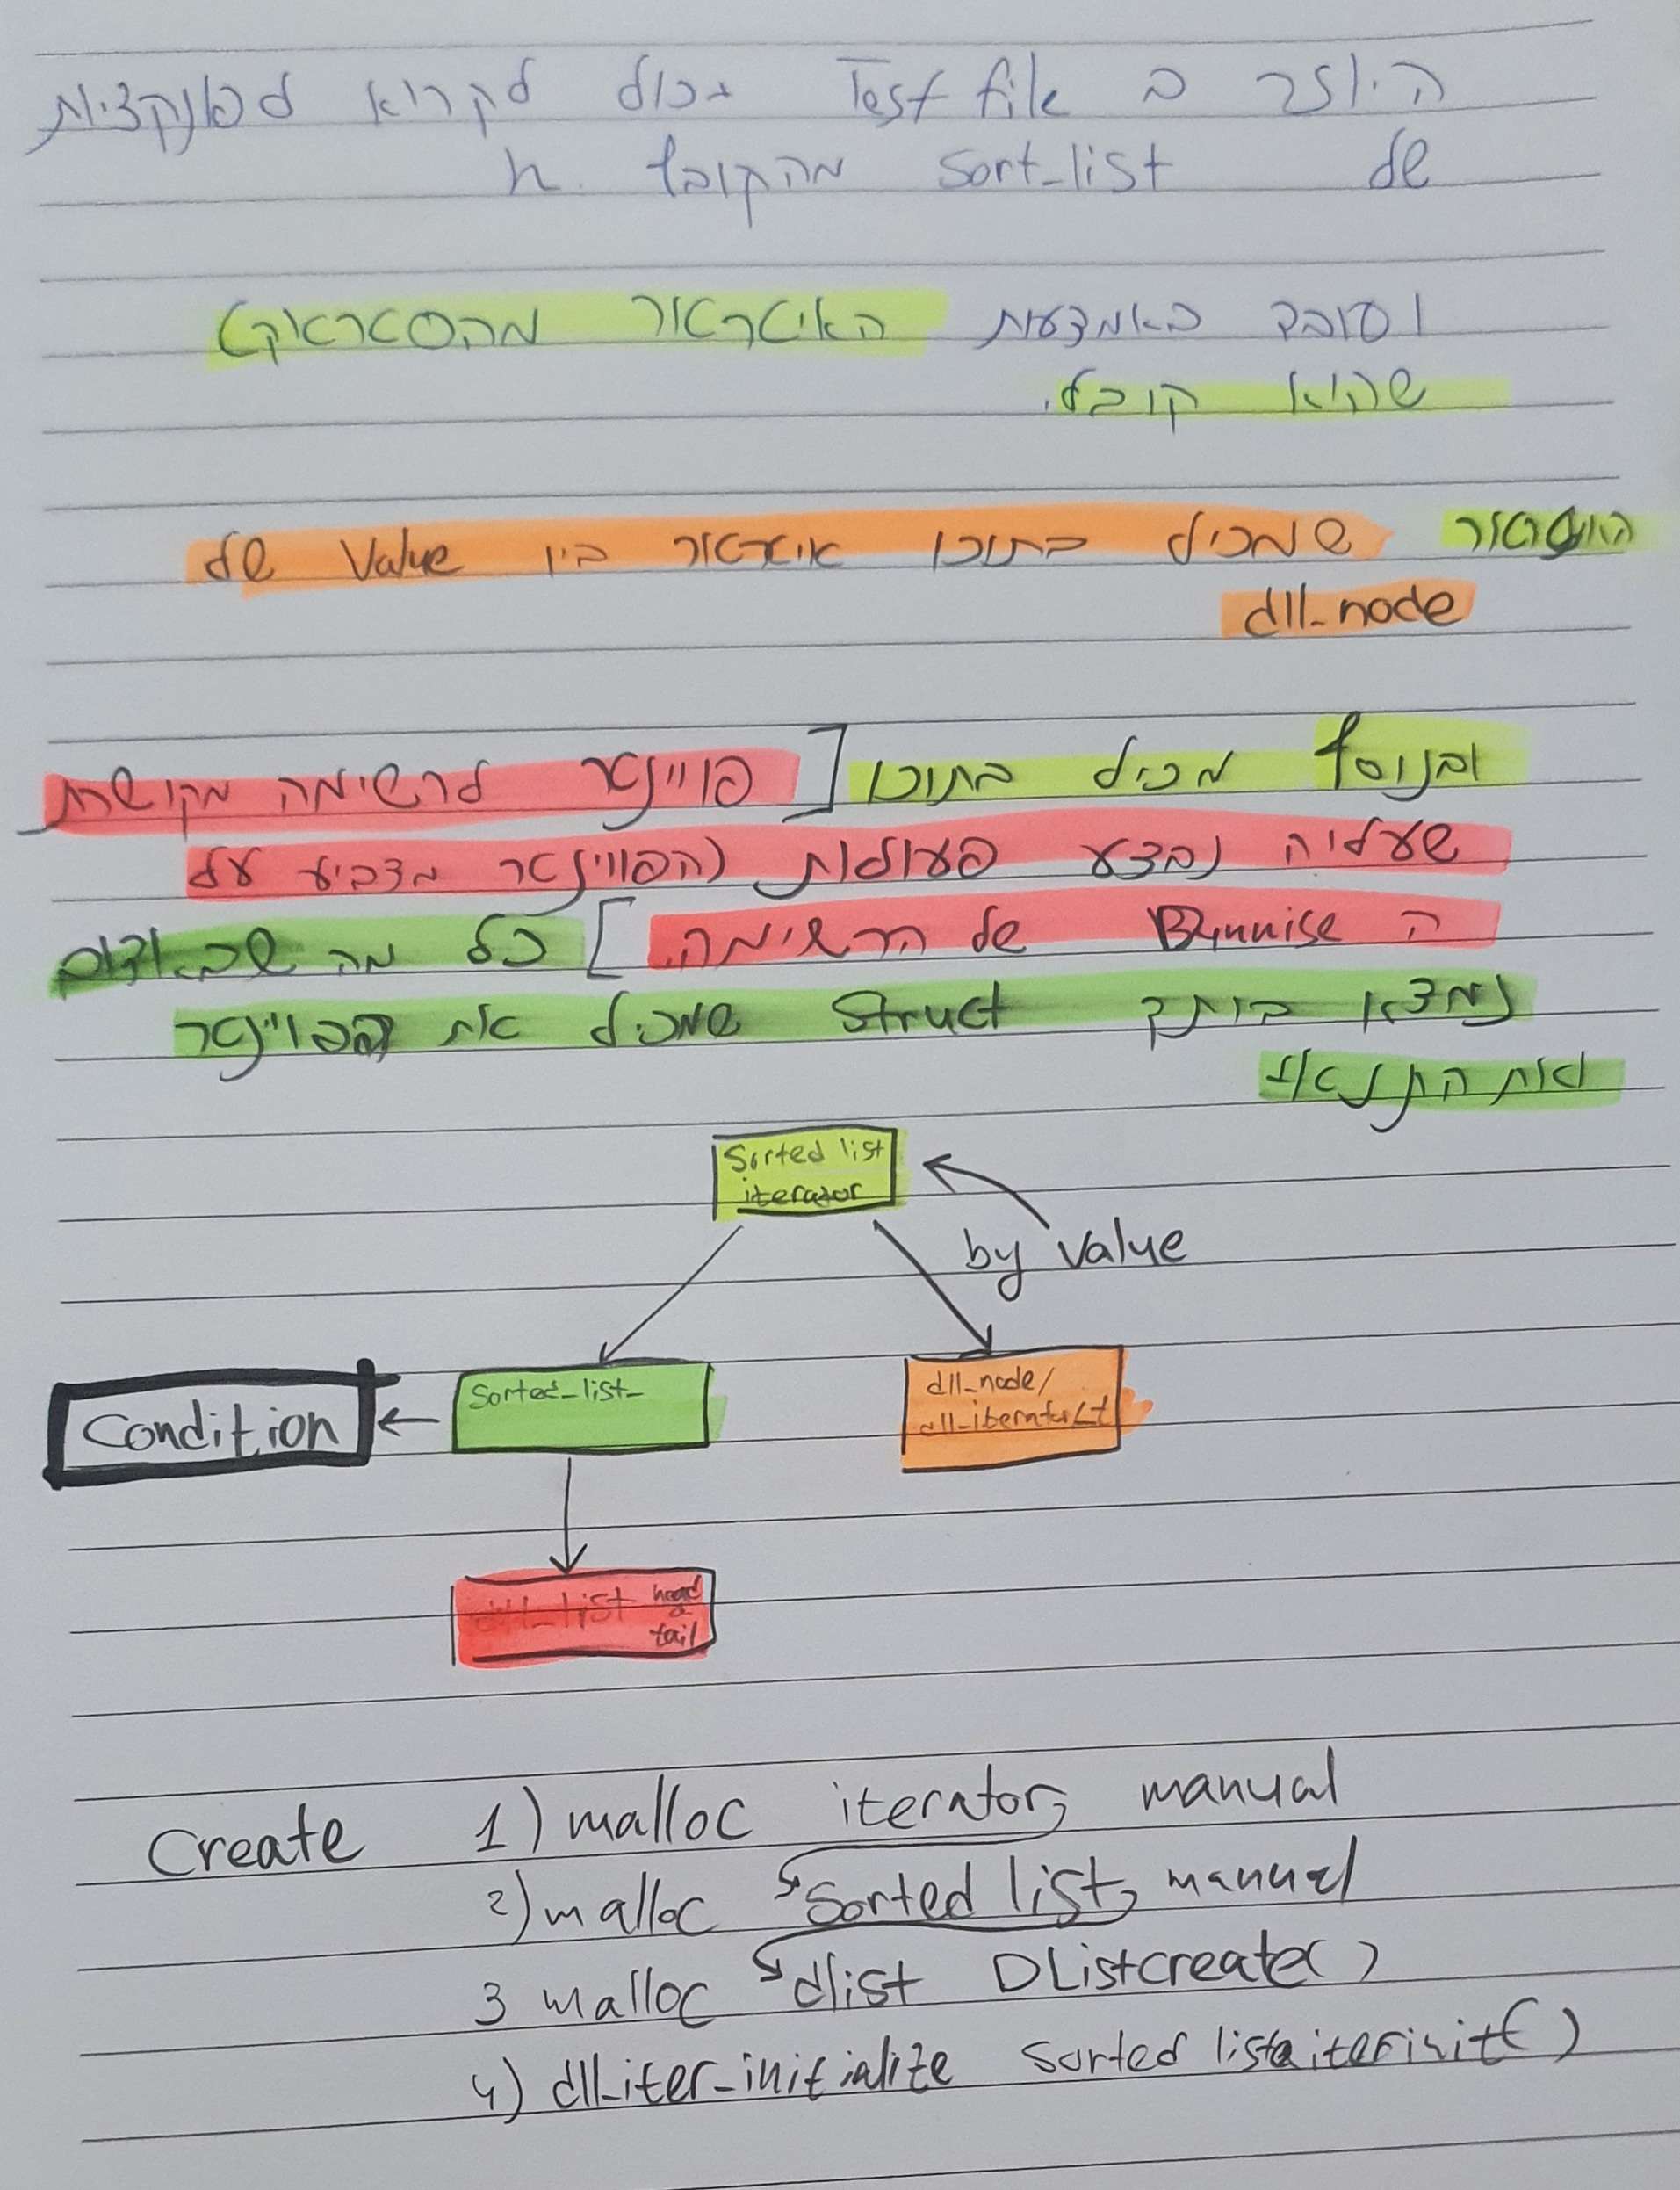 היוזר ב Test file יכול לקרוא לפונקציות
של sort_list מהקובץ h.
ועובד באמצעות האיטרטור מהסטראקט
שהוא קובל.
שמכיל בתוכו איטרטור בין Value של
dll_node
ובנוסף מכיל בתוכו [פויינטר לרשימה מקושרת
שעליה נבצע פעולות (הפויינטר מצביע על
ה של הרשימה.] כל מה שבאדום
נמצא בותך Struct שמכיל את הפויינטר
ואת התנאי
Sorted list
iterator
by value
Condition
Sorted_list_
dll_node/
dll_iterator_t
dll_list head
tail
Create 1) malloc iterator, manual
2) malloc Sorted list, manual
3 malloc dlist DListcreate()
4) dll-iter-initialize sorted listiterinit()